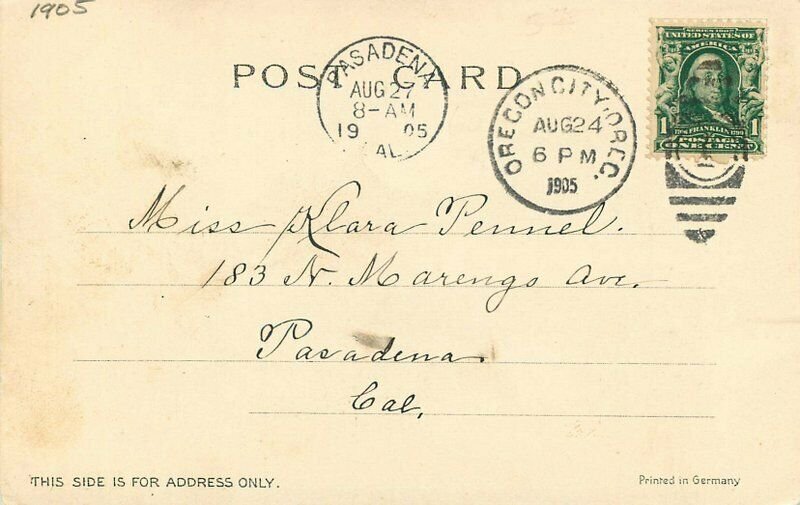 1905
POST CARD
PASADENA
AUG 27
8-AM
1905
CAL
OREGON CITY, OREG.
AUG 24
6 PM
1905
SERIES 1902
UNITED STATES OF
AMERICA
1 FRANKLIN 1
POSTAGE
ONE CENT
Miss Klara Pennel.
183 N. Marengo Ave.
Pasadena.
Cal.
THIS SIDE IS FOR ADDRESS ONLY.
Printed in Germany